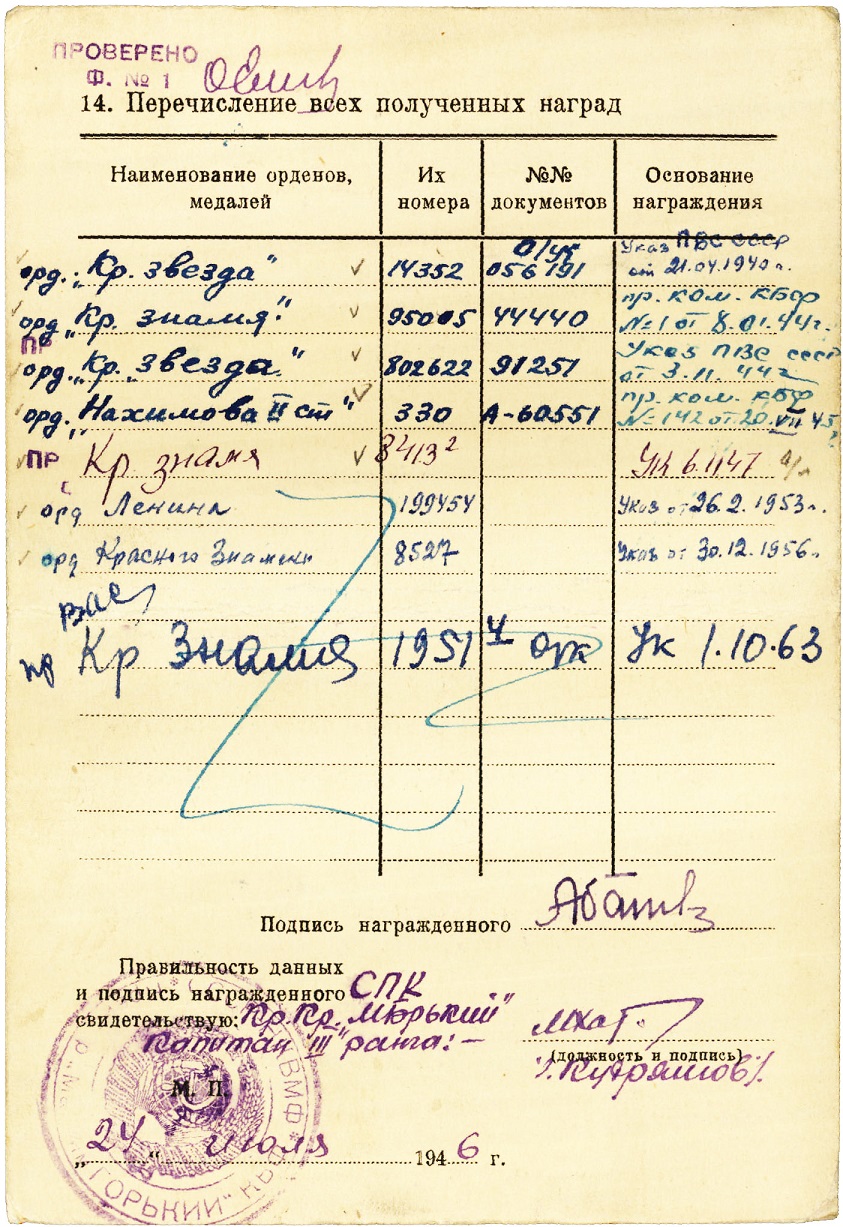 ПРОВЕРЕНО
Ф. № 1
14. Перечисление всех полученных наград
Наименование орденов, медалей Их номера №№ документов Основание награждения
орд. „Кр. звезда" 14352 056191 Указ ПВС СССР от 21.04.1940 г.
орд. „Кр. знамя" 95005 44440 пр. ком. КБФ №1 от 8.01.44г.
ПР
орд. „Кр. звезда" 802622 91251 Указ ПВС СССР от 3.11.44г
орд. „Нахимова II ст" 330 А-60551 пр. ком. КБФ №142 от 20.VII 45
ПР Кр знамя 8413² Ук 6.11 47
орд Ленина 199454 Указ от 26.2.1953 г.
орд Красного Знамени 8527 Указ от 30.12.1956 г.
пр Кр Знамя 1951 4 орк Ук 1.10.63
Подпись награжденного
Правильность данных
и подпись награжденного СПК
свидетельствую: Кр. Кр.
Капитан III ранга: —
(должность и подпись)
/. Кудряшов /.
М. П.
„24" июля 1946 г.
ГОРЬКИЙ" КБФ ВМФ